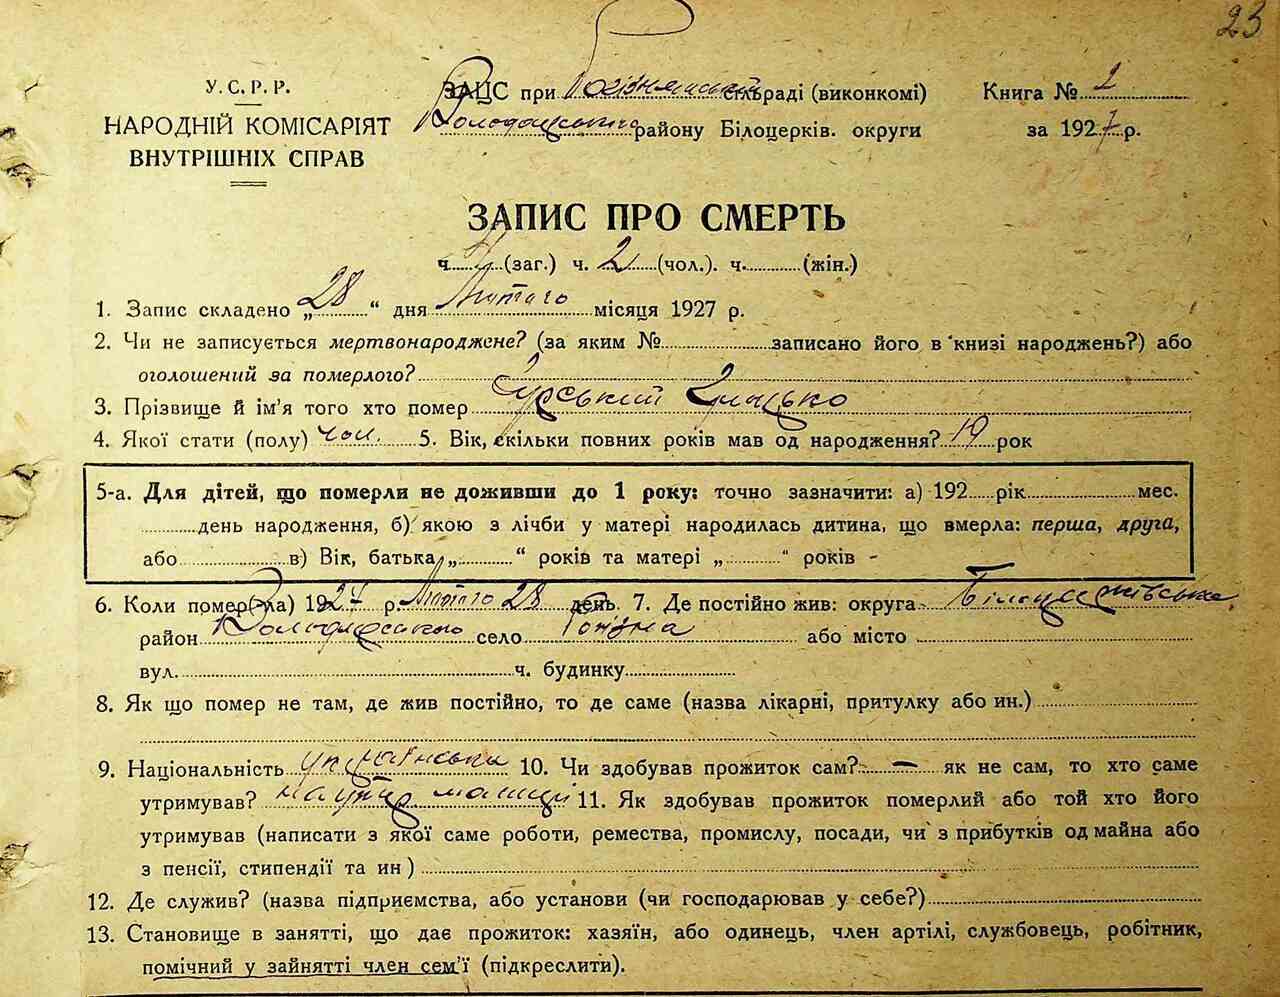 23
У. С. Р. Р.
НАРОДНІЙ КОМІСАРІЯТ
ВНУТРІШНІХ СПРАВ
ЗАЦС при сільраді (виконкомі)
району Білоцерків. округи
Книга № 1
за 1927 р.
ЗАПИС ПРО СМЕРТЬ
ч. 4 (заг.) ч. 2 (чол.). ч. (жін.)
1. Запис складено „28“ дня Лютого місяця 1927 р.
2. Чи не записується мертвонароджене? (за яким № записано його в книзі народжень?) або
оголошений за померлого?
3. Прізвище й ім'я того хто помер Сурський Грицько
4. Якої стати (полу) чол. 5. Вік, скільки повних років мав од народження? 19 рок
5-а. Для дітей, що померли не доживши до 1 року: точно зазначити: а) 192 рік мес.
день народження, б) якою з лічби у матері народилась дитина, що вмерла: перша, друга,
або в) Вік, батька „ “ років та матері „ “ років
6. Коли помер(ла) 1927 р. Лютого 28 день. 7. Де постійно жив: округа Білоцерківська
район село або місто
вул. ч. будинку
8. Як що помер не там, де жив постійно, то де саме (назва лікарні, притулку або ин.)
9. Національність українська 10. Чи здобував прожиток сам? — як не сам, то хто саме
утримував? 11. Як здобував прожиток померлий або той хто його
утримував (написати з якої саме роботи, ремества, промислу, посади, чи з прибутків од майна або
з пенсії, стипендії та ин)
12. Де служив? (назва підприємства, або установи (чи господарював у себе?)
13. Становище в занятті, що дає прожиток: хазяїн, або одинець, член артілі, службовець, робітник,
помічний у зайнятті член сем'ї (підкреслити).